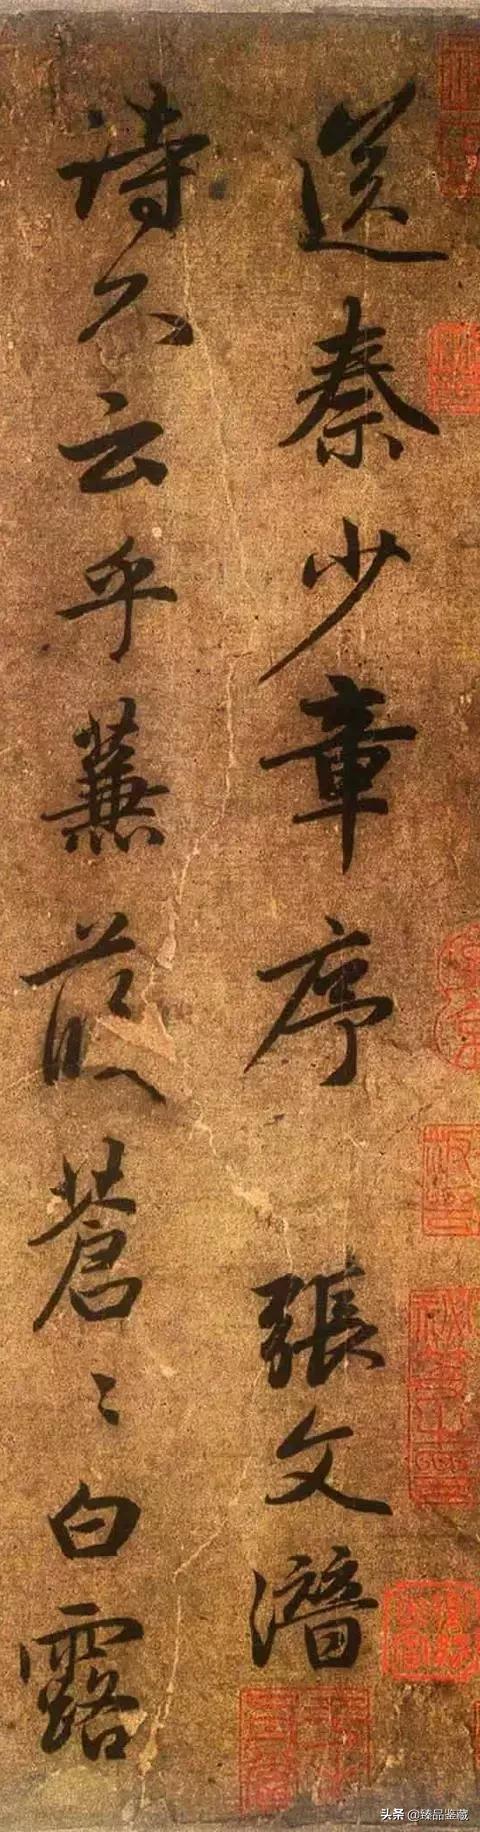 送秦少章序 張文潛
詩不云乎蒹葭蒼〻白露
头条 @臻品鉴藏